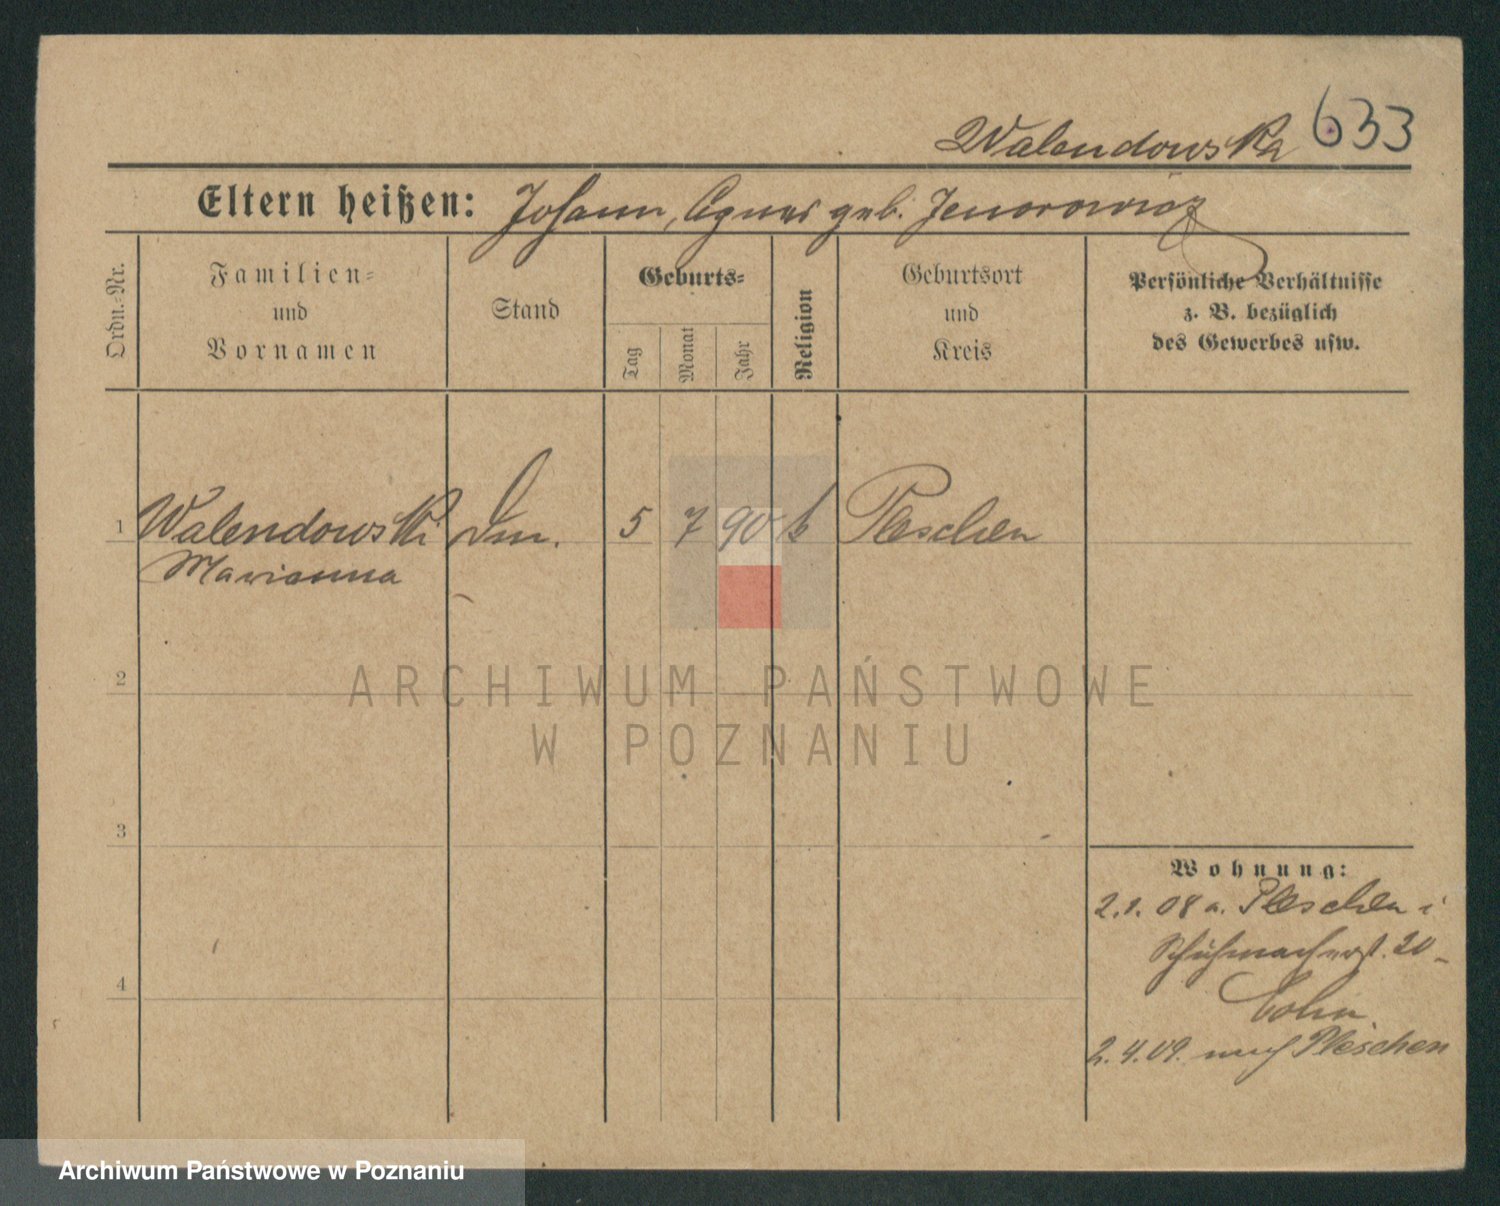 Walendowska 633
Eltern heißen: Johann, Agnes geb. Jenorowicz
Ordn.-Nr.
Familien-
und
Vornamen
Stand
Geburts-
Tag
Monat
Jahr
Religion
Geburtsort
und
Kreis
Persönliche Verhältnisse
z. B. bezüglich
des Gewerbes usw.
1 Walendowski Dm. 5 7 90 k Pleschen
Marianna
2
ARCHIWUM PAŃSTWOWE
W POZNANIU
3
Wohnung:
2.1.08 a. Pleschen i
Schuhmacherst. 20
4
Cohn
2.4.09. nach Pleschen
Archiwum Państwowe w Poznaniu